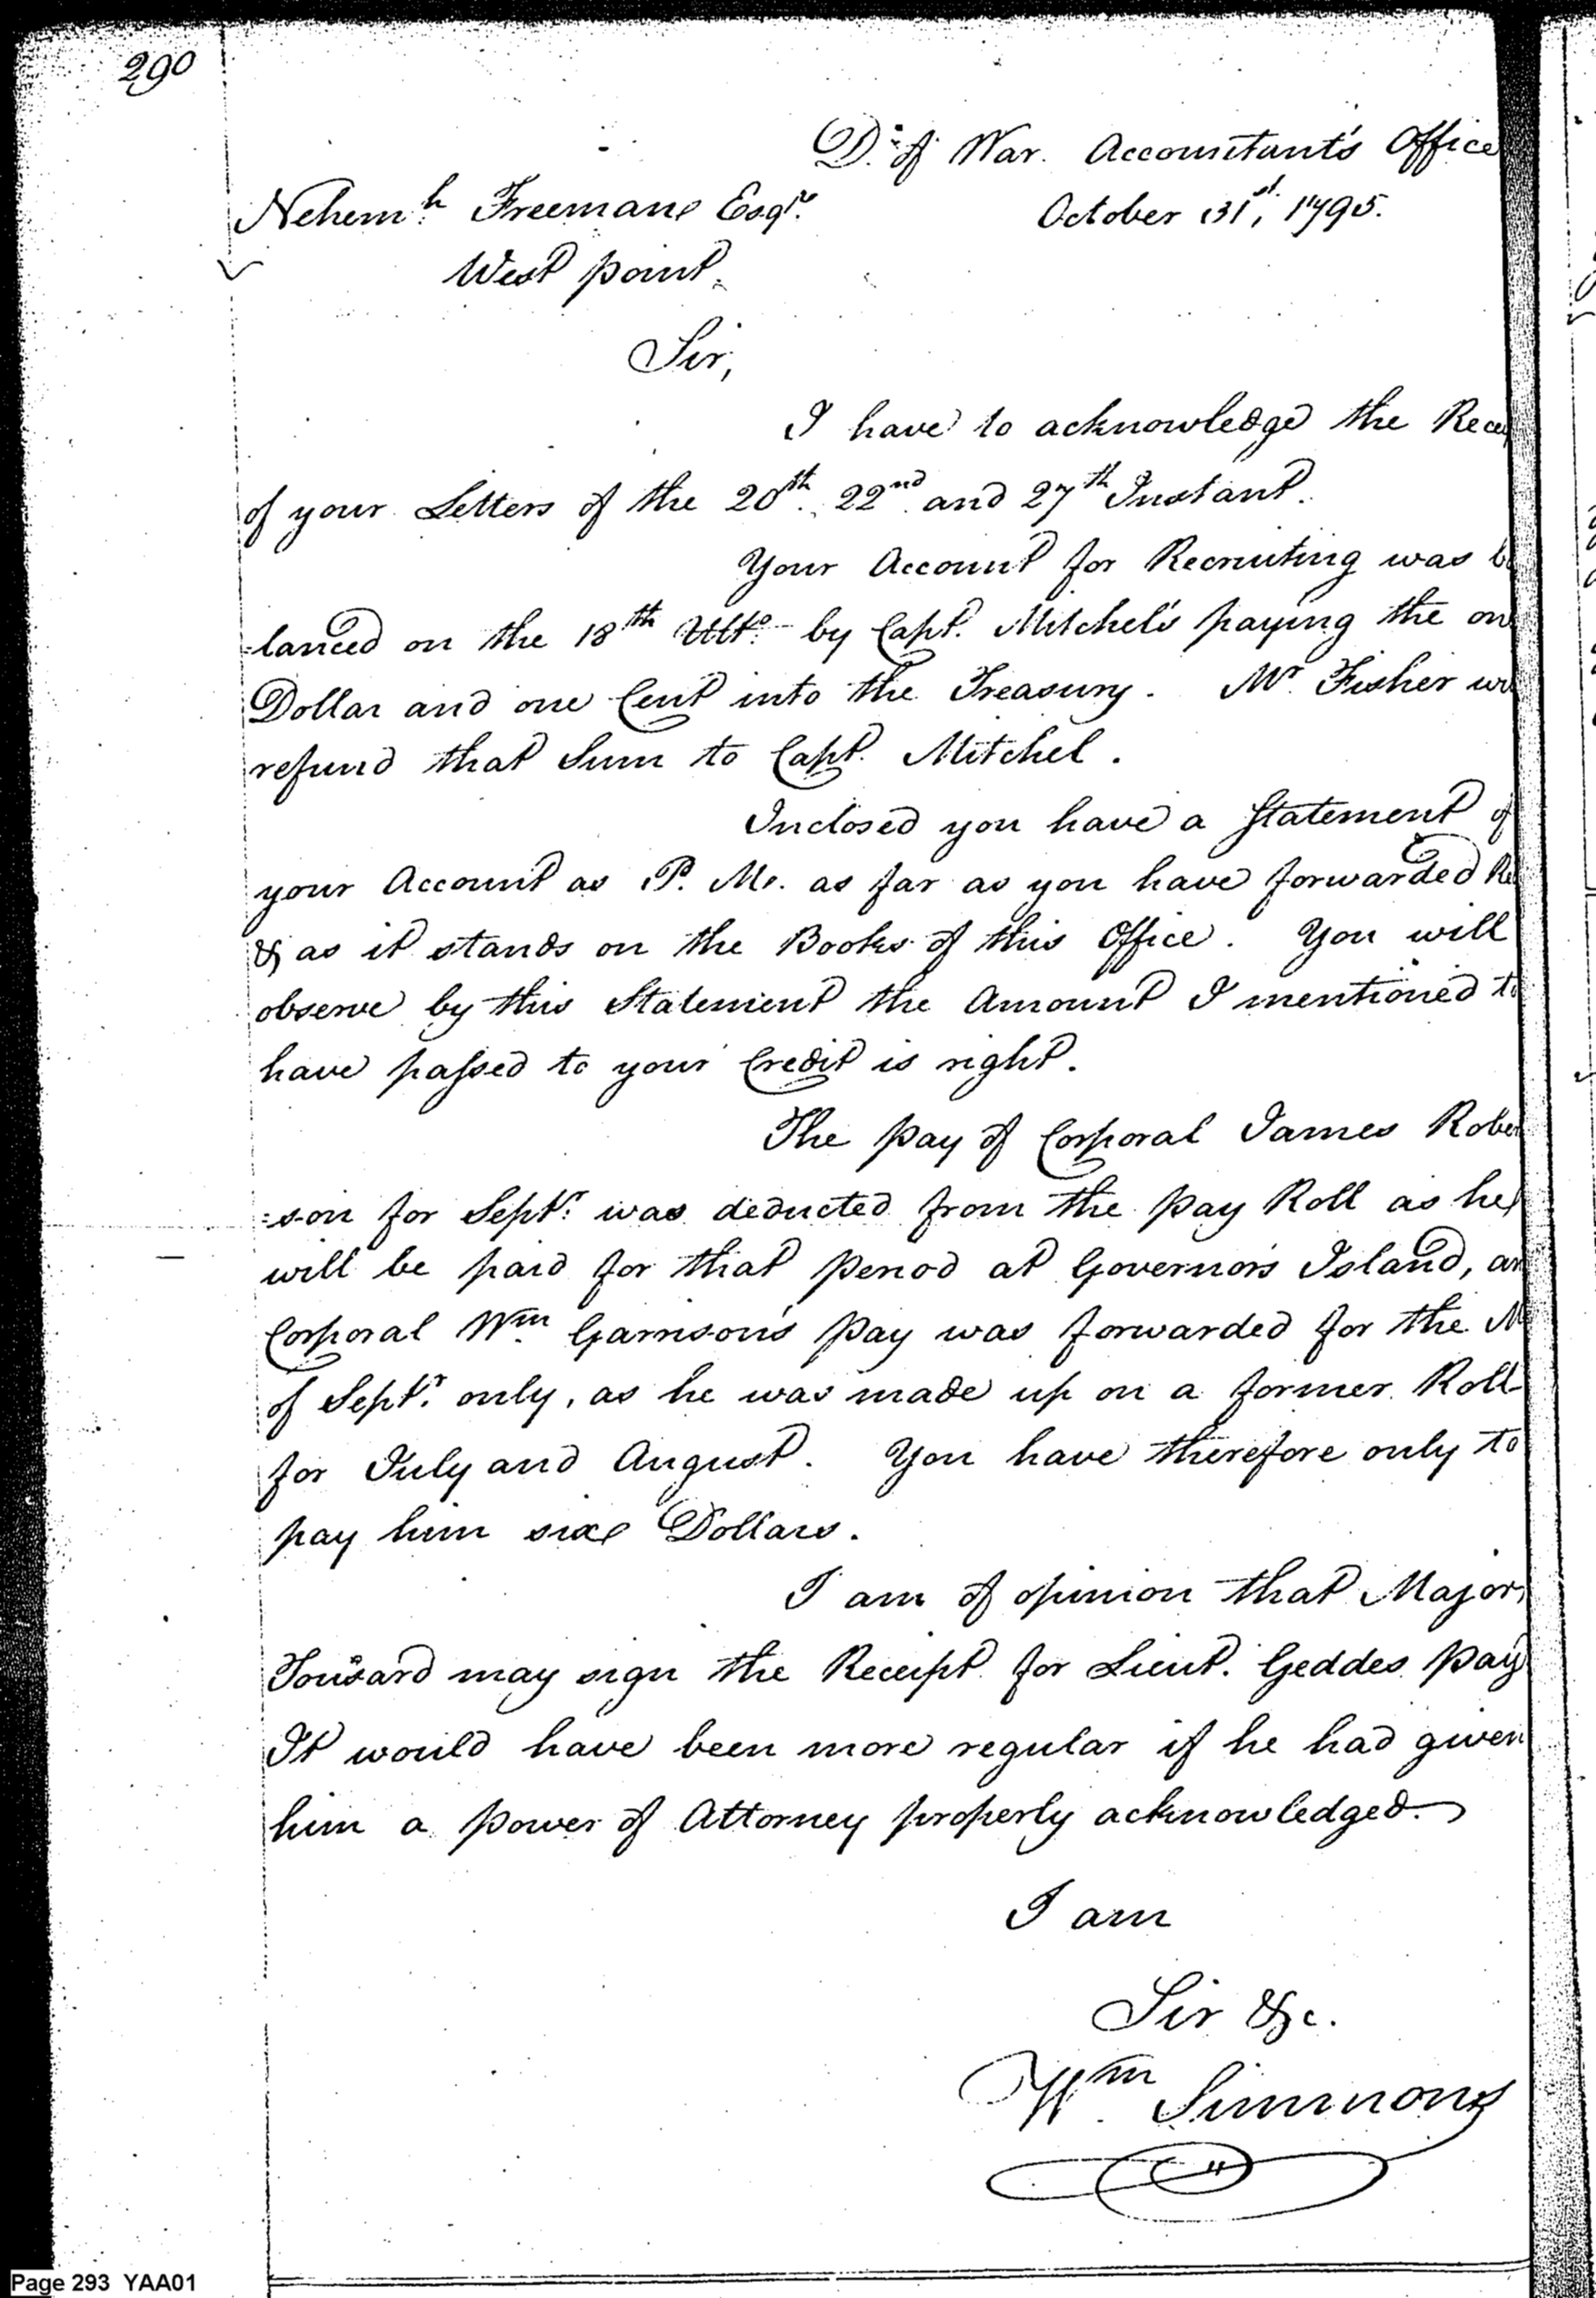 290
D. of War. Accountant's Office
Nehemh. Freeman Esqr.
October 31st, 1795.
West point.
Sir,
I have to acknowledge the
of your Letters of the 20th. 22nd. and 27th Instant.
Your Account for Recruiting was
=lanced on the 18th Ulto. by Capt. Mitchel's paying the
Dollar and one Cent into the Treasury. Mr. Fisher
refund that Sum to Capt. Mitchel.
Inclosed you have a Statement of
your Account as P. Mr. as far as you have forwarded
& as it stands on the Books of this Office. You will
observe by this Statement the Amount I mentioned to
have passed to your Credit is right.
The pay of Corporal James Rober
=son for Septr. was deducted from the pay Roll as he
will be paid for that period at Governor's Island,
Corporal Wm. Garrison's pay was forwarded for the M
of Septr. only, as he was made up on a former Roll
for July and August. You have therefore only to
pay him six Dollars.
I am of opinion that Major
Tousard may sign the Receipt for Lieut. Geddes pay
It would have been more regular if he had given
him a power of Attorney properly acknowledged.
I am
Sir &c.
Wm. Simmons
Page 293 YAA01